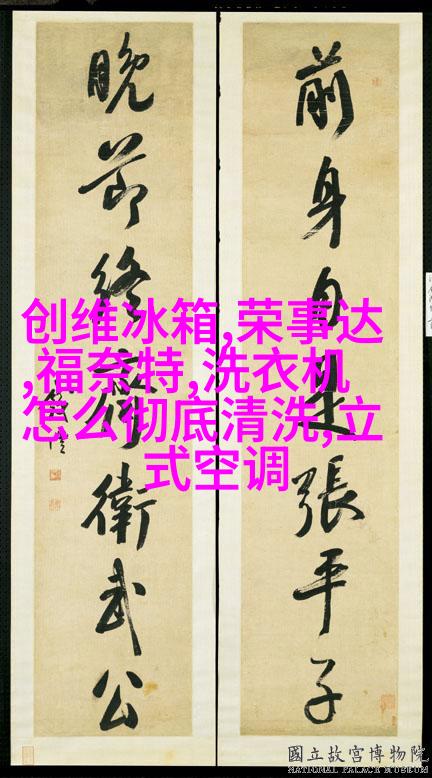 前身自是張平子
晚節終衛武公
创维冰箱,荣事达
,福奈特,洗衣机
怎么彻底清洗,立
式空调
國立故宮博物院
NATIONAL PALACE MUSEUM